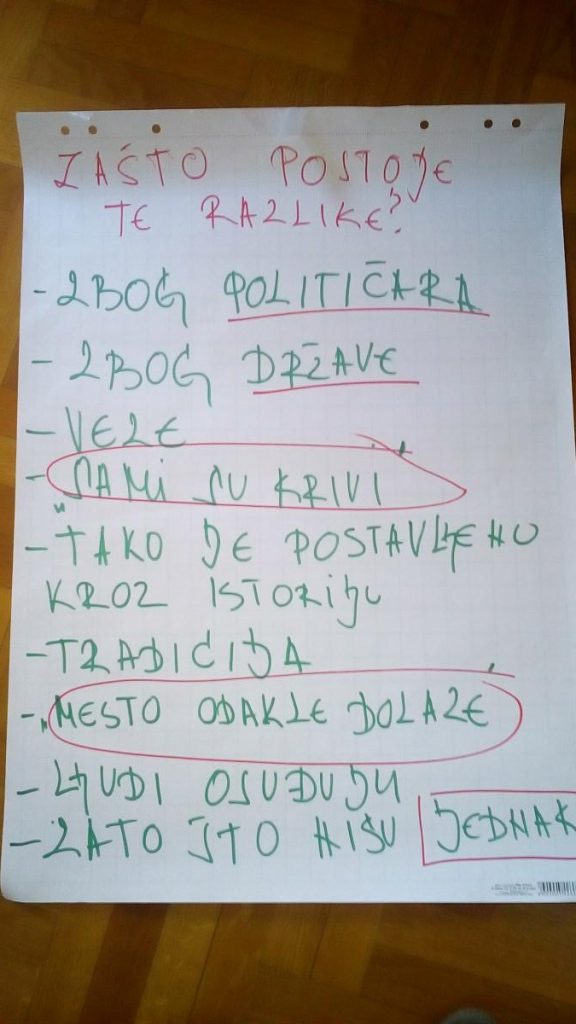 ZAŠTO POSTOJE
TE RAZLIKE?
- ZBOG POLITIČARA
- ZBOG DRŽAVE
- VEZE
- "SAMI SU KRIVI
- TAKO JE POSTAVLJENO
KROZ ISTORIJU
- TRADICIJA
- "MESTO ODAKLE DOLAZE
- LJUDI OSUĐUJU
- ZATO ŠTO NISU JEDNAK